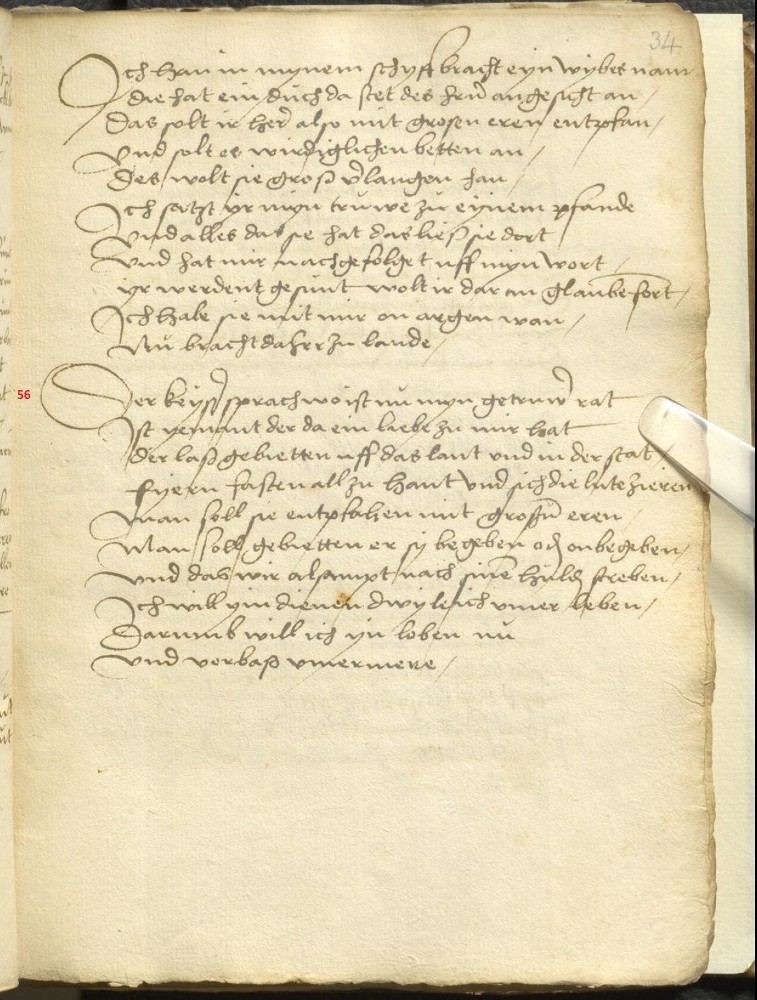 34
Ich han in mynem schyff bracht eyn wybes nam
die hat ein duch da stet des hern angesicht an /
Das solt ir her also mit grosen eren entpfan /
Vnd solt es wirdiglichen betten an /
Des wolt sie groß verlangen han
Ich satzt yr myn truwe zu eynem pfande
Vnd alles das sie hat das ließ sie dort
Vnd hat mir nachgefolget uff myn wort /
yr werdent gesunt wolt ir dar an glaube fort /
Ich habe sie mit mir on argen wan /
Nu bracht da her zu lande /
56
Der keyser sprach wo ist nu myn getruwer rat
Ist yemant der da ein liebe zu mir hat
der laß gebietten uff das lant vnd in der stat /
fyern fasten all zu hant vnd sich die lute zieren
Man soll sie entpfahen mit großen eren /
Man soll gebietten er sy begeben oder onbegeben /
Vnd das wir alsampt nach siner hulde streben /
Ich will ym dienen dwyle ich vmer leben /
Darumb will ich yn loben nu
Vnd verbaß vmermere /